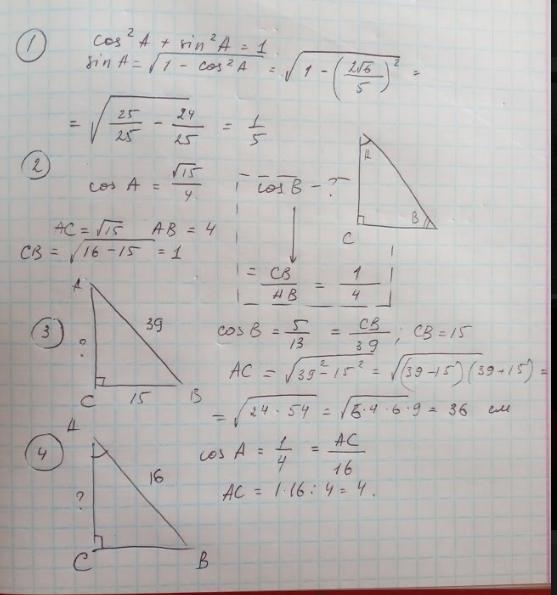 1
cos²A + sin²A = 1
sin A = √(1 - cos²A) = √(1 - (2√6/5)²) =
= √(25/25 - 24/25) = 1/5
2
cos A = √15/4 cos B - ?
AC = √15 AB = 4
CB = √(16 - 15) = 1
= CB/AB = 1/4
A
B
C
3
A
39
?
C 15 B
cos B = 5/13 = CB/39; CB = 15
AC = √(39² - 15²) = √((39 - 15)(39 + 15)) =
= √(24 · 54) = √(6 · 4 · 6 · 9) = 36 см
4
A
16
?
C B
cos A = 1/4 = AC/16
AC = 1 · 16 : 4 = 4.